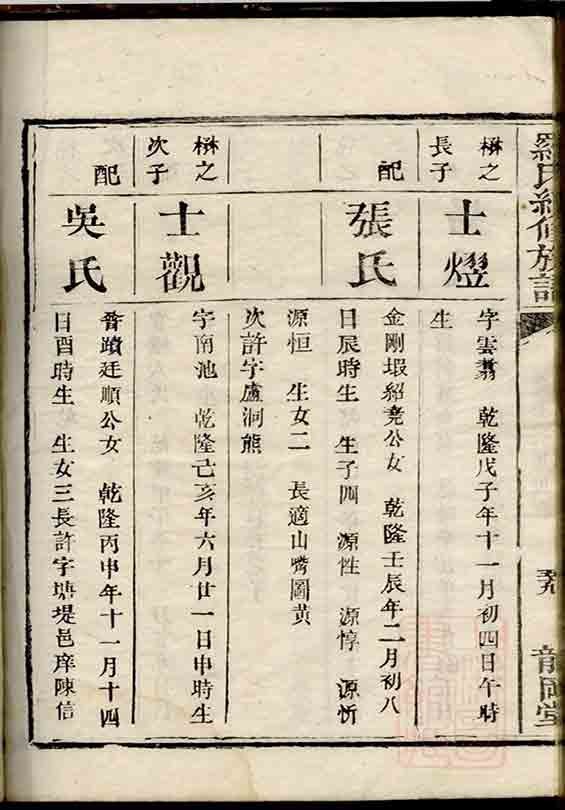 羅氏續修族譜
龍岡堂
楙之
長子
士熤
字雲翥 乾隆戊子年十一月初四日午時
生
配
張氏
金剛塅紹堯公女 乾隆壬辰年二月初八
日辰時生 生子四 源性 源惇 源忻
源恒 生女二 長適山嘴圖黃
次許字盧洞熊
楙之
次子
士觀
字南池 乾隆己亥年六月廿一日申時生
配
吳氏
晉蹟廷順公女 乾隆丙申年十一月十四
日酉時生 生女三長許字塘堤邑庠陳信